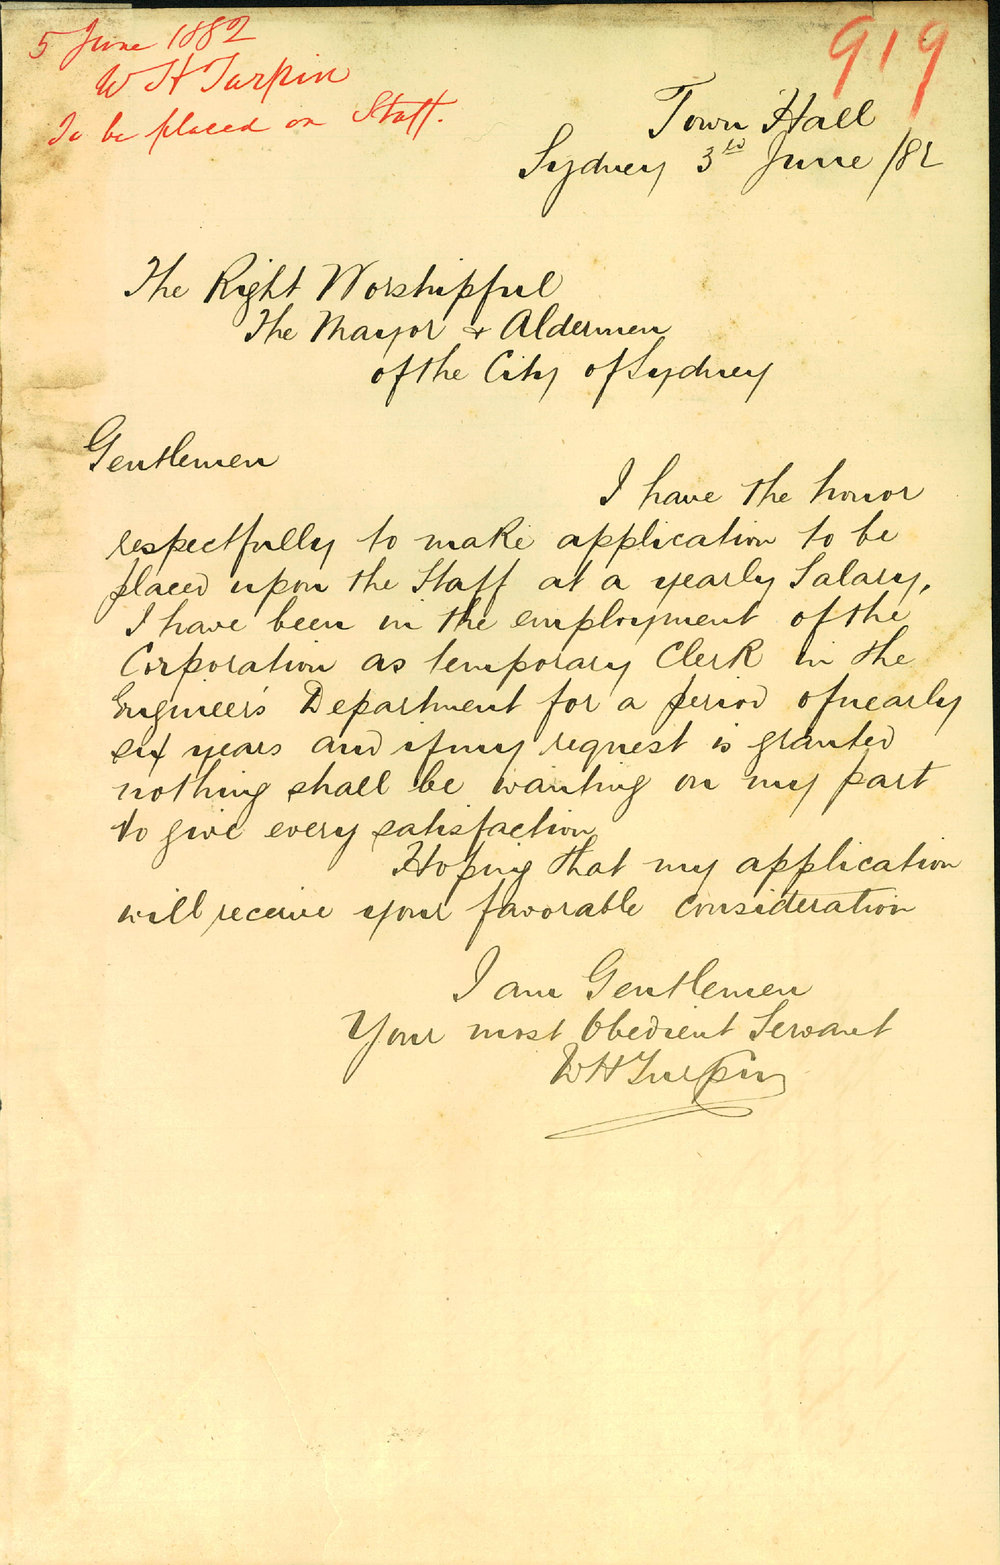 5 June 1882
W H Turpin
To be placed on Staff.
919
Town Hall
Sydney 3rd June /82
The Right Worshipful
The Mayor & Aldermen
of the City of Sydney
Gentlemen
I have the honor
respectfully to make application to be
placed upon the Staff at a yearly Salary,
I have been in the employment of the
Corporation as temporary Clerk in the
Engineer's Department for a period of nearly
six years and if my request is granted
nothing shall be wanting on my part
to give every satisfaction
Hoping that my application
will receive your favorable consideration
I am Gentlemen
Your most Obedient Servant
W H Turpin